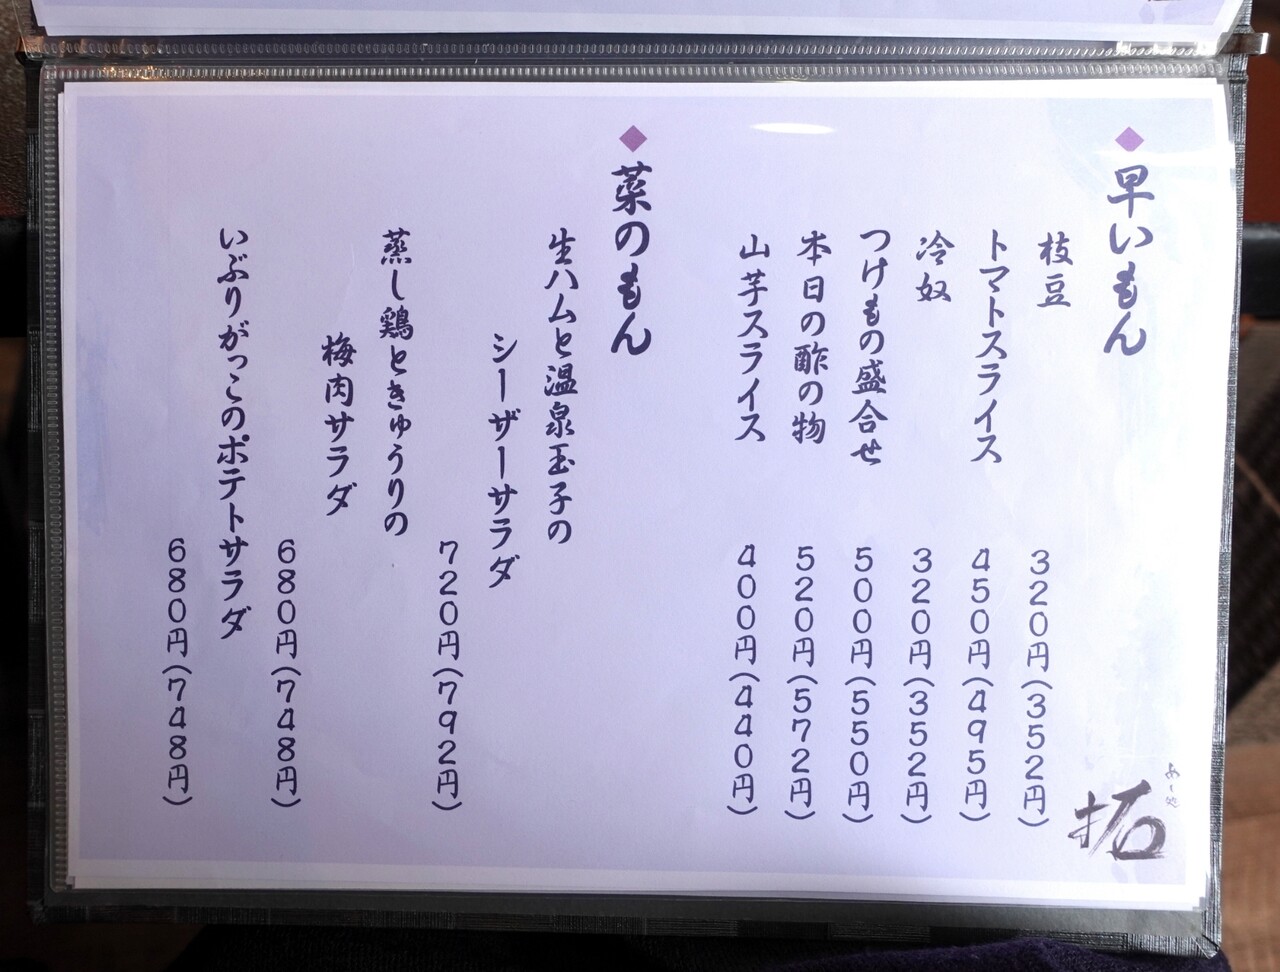 ◆早いもん
枝豆 320円(352円)
トマトスライス 450円(495円)
冷奴 320円(352円)
つけもの盛合せ 500円(550円)
本日の酢の物 520円(572円)
山芋スライス 400円(440円)
◆菜のもん
生ハムと温泉玉子の
シーザーサラダ
720円(792円)
蒸し鶏ときゅうりの
梅肉サラダ
680円(748円)
いぶりがっこのポテトサラダ
680円(748円)
拓